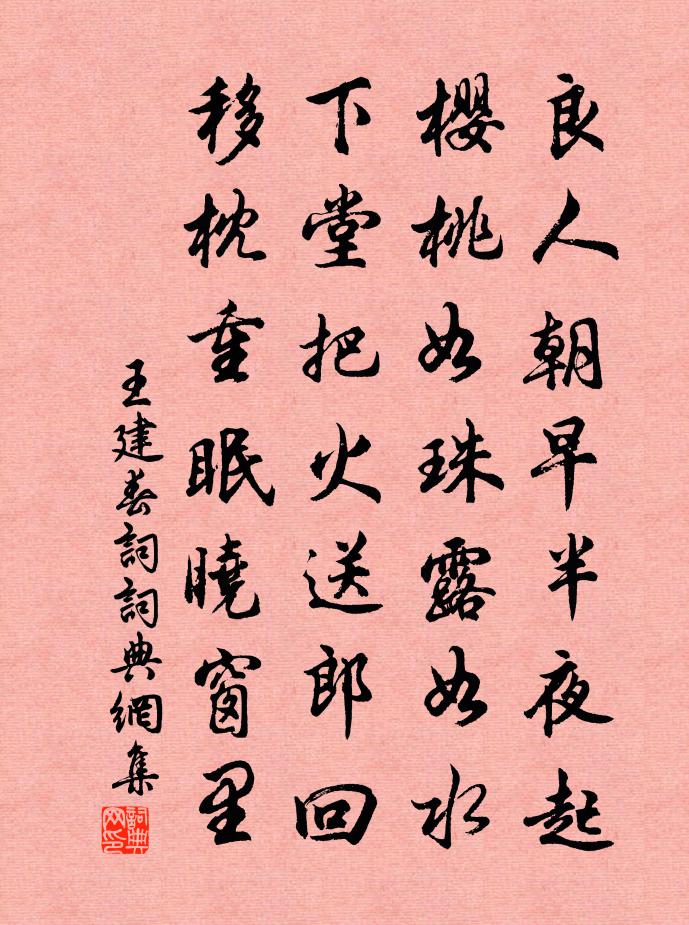 良人朝早半夜起
櫻桃如珠露如水
下堂把火送郎回
移枕重眠曉窗里
王建春詞詞典網集
詞典网印